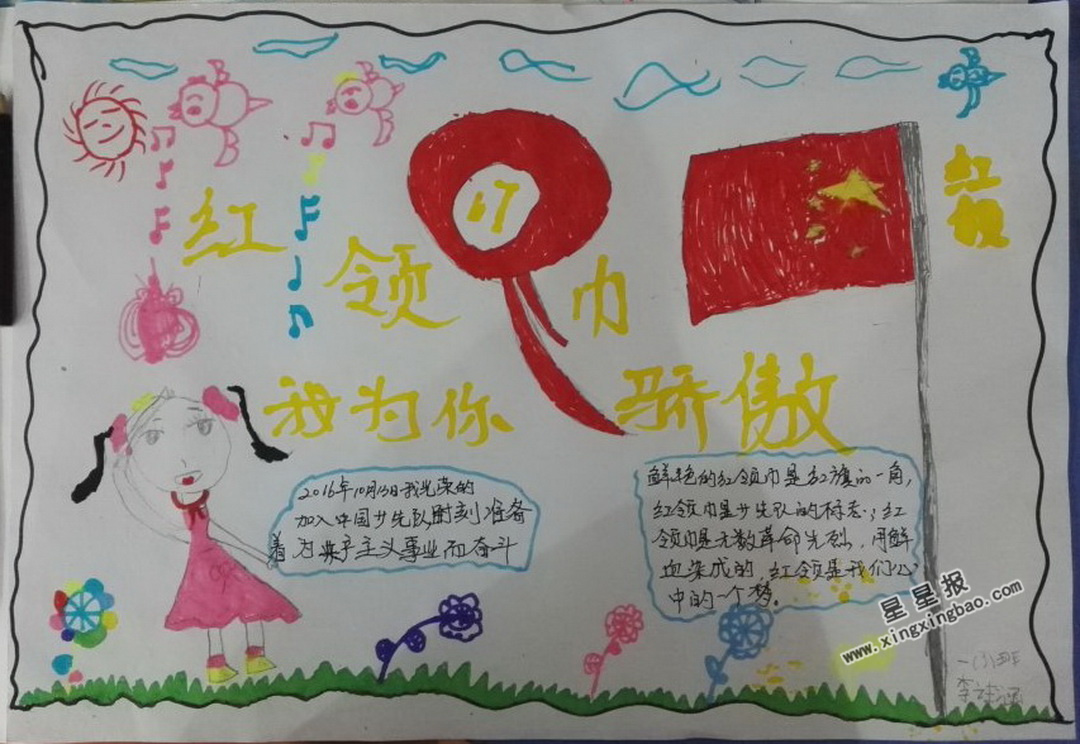 红领巾
我为你骄傲
17
红旗
2016年10月13日我光荣的
加入中国少先队时刻准备
着为共产主义事业而奋斗
鲜艳的红领巾是红旗的一角,
红领巾是少先队的标志,红
领巾是无数革命先烈,用鲜
血染成的,红领是我们心
中的一个梦。
星星报
www.xingxingbao.com
一(3)班